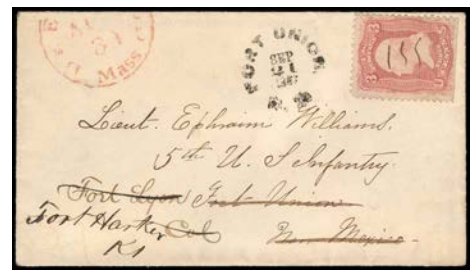 Mass.
FORT UNION.
SEP
21
3
3
Lieut. Ephraim Williams.
5th U. S Infantry.
Fort Lyon Fort Union
Fort Harker Col New Mexico.
Ks